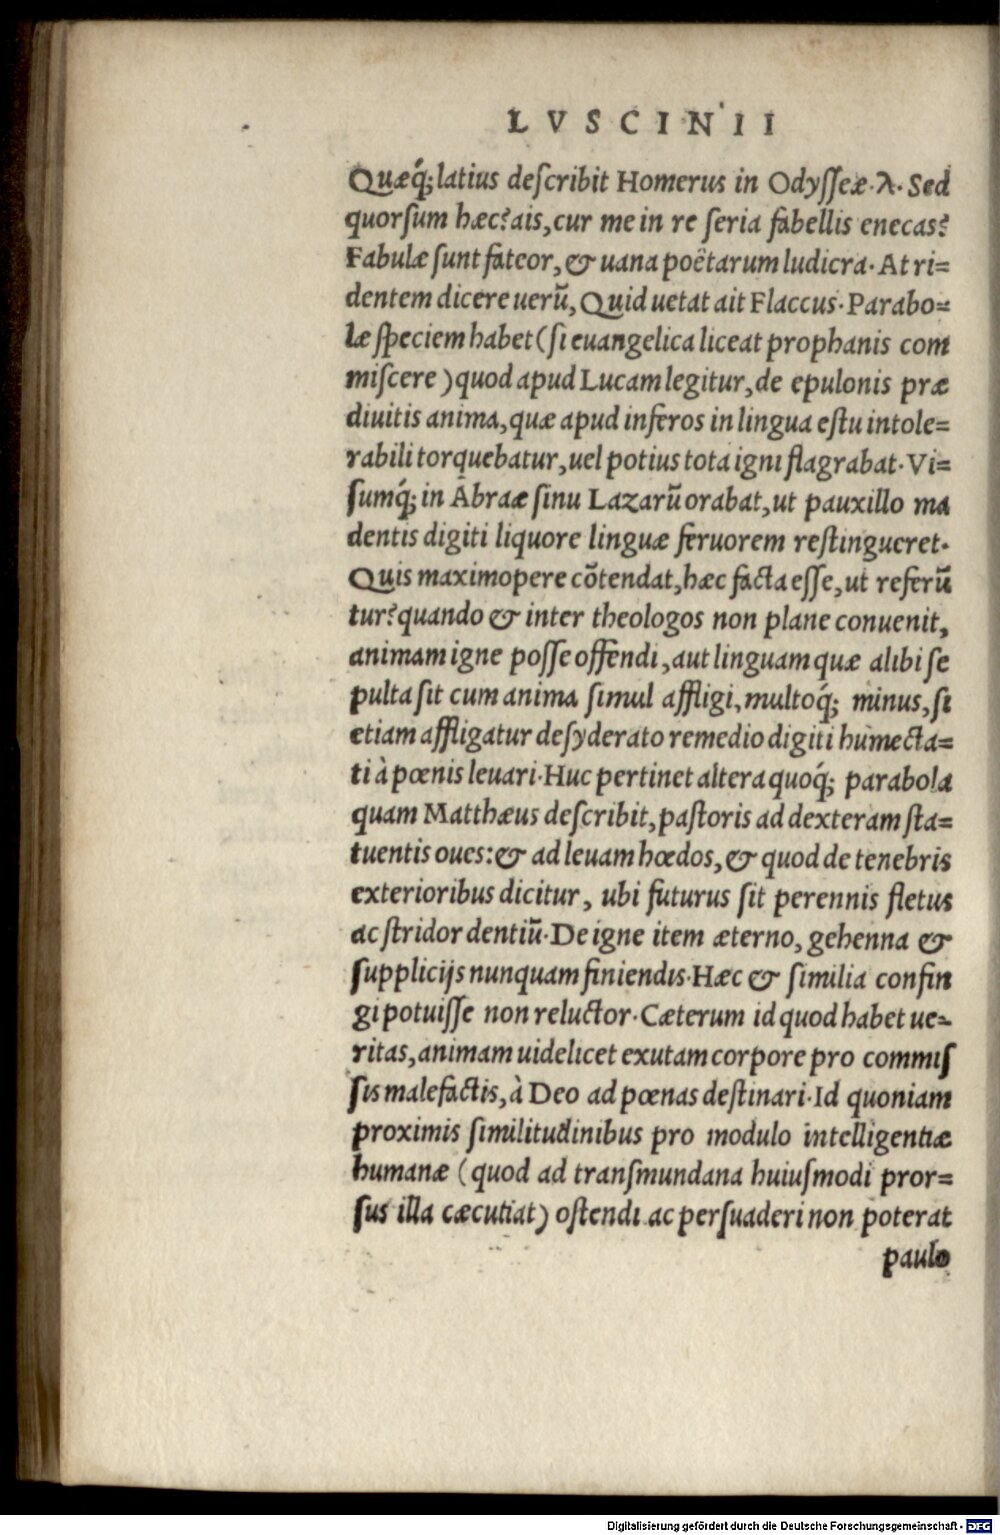 LVSCINII
Quæq́; latius deſcribit Homerus in Odyſſeæ.λ. Sed
quorſum hæc? ais, cur me in re ſeria fabellis enecas?
Fabulæ ſunt fateor, & uana poëtarum ludicra. At ri=
dentem dicere uerū, Quid uetat ait Flaccus. Parabo=
læ ſpeciem habet (ſi euangelica liceat prophanis com
miſcere) quod apud Lucam legitur, de epulonis præ
diuitis anima, quæ apud inferos in lingua eſtu intole=
rabili torquebatur, uel potius tota igni flagrabat. Vi=
ſumq́; in Abraæ ſinu Lazarū orabat, ut pauxillo ma
dentis digiti liquore linguæ feruorem reſtingueret.
Quis maximopere cōtendat, hæc facta eſſe, ut referū
tur? quando & inter theologos non plane conuenit,
animam igne poſſe offendi, aut linguam quæ alibi ſe
pulta ſit cum anima ſimul affligi, multoq́; minus, ſi
etiam affligatur deſyderato remedio digiti humecta=
ti à pœnis leuari. Huc pertinet altera quoq́; parabola
quam Matthæus deſcribit, paſtoris ad dexteram ſta=
tuentis oues: & ad leuam hœdos, & quod de tenebris
exterioribus dicitur, ubi futurus ſit perennis fletus
ac ſtridor dentiū. De igne item æterno, gehenna &
ſupplicijs nunquam finiendis. Hæc & ſimilia confin
gi potuiſſe non reluctor. Cæterum id quod habet ue=
ritas, animam uidelicet exutam corpore pro commiſ
ſis malefactis, à Deo ad pœnas deſtinari. Id quoniam
proximis ſimilitudinibus pro modulo intelligentiæ
humanæ (quod ad tranſmundana huiuſmodi pror=
ſus illa cæcutiat) oſtendi ac perſuaderi non poterat
paulo
Digitalisierung gefördert durch die Deutsche Forschungsgemeinschaft - DFG